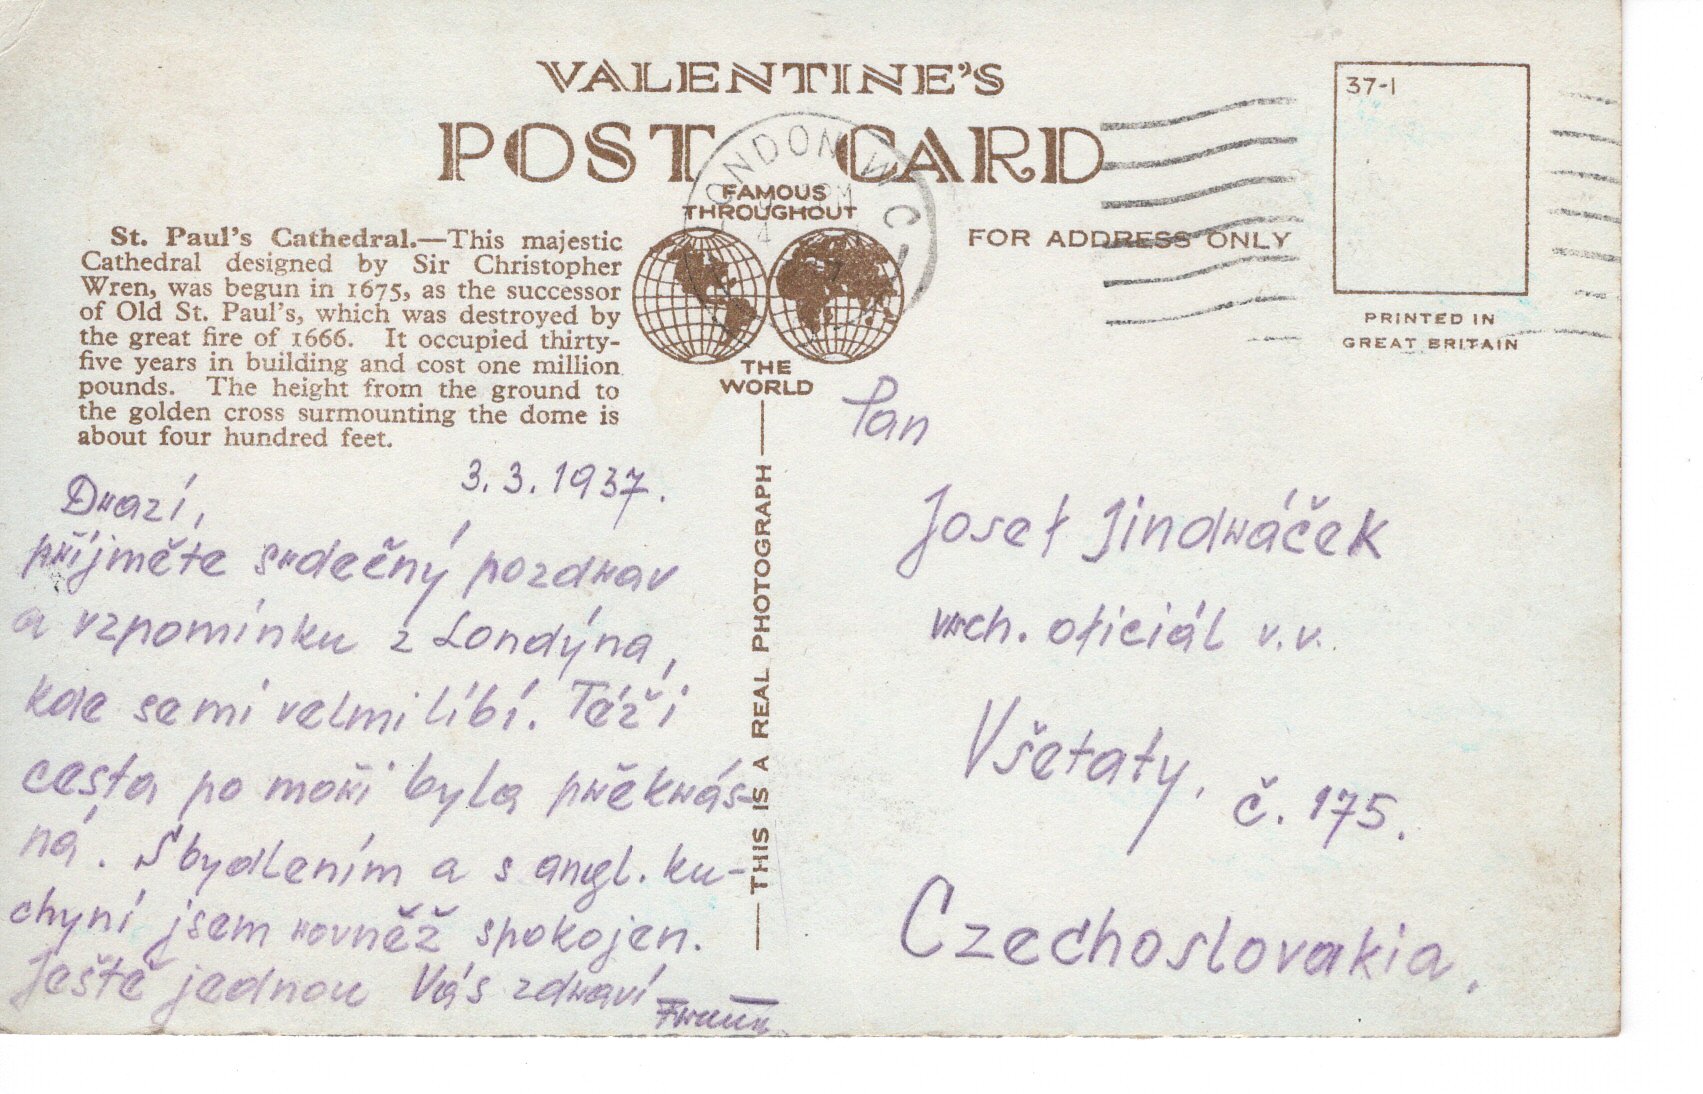 VALENTINE'S
POST CARD
LONDON W.C.
FAMOUS
THROUGHOUT
THE
WORLD
FOR ADDRESS ONLY
37-1
PRINTED IN
GREAT BRITAIN
St. Paul's Cathedral.—This majestic
Cathedral designed by Sir Christopher
Wren, was begun in 1675, as the successor
of Old St. Paul's, which was destroyed by
the great fire of 1666. It occupied thirty-
five years in building and cost one million
pounds. The height from the ground to
the golden cross surmounting the dome is
about four hundred feet.
THIS IS A REAL PHOTOGRAPH
3. 3. 1937.
Drazí,
přijměte srdečný pozdrav
a vzpomínku z Londýna,
kde se mi velmi líbí. Též i
cesta po moři byla překrás-
ná. S bydlením a s angl. ku-
chyní jsem rovněž spokojen.
Ještě jednou Vás zdraví
Pan
Josef Jindráček
vrch. oficiál v.v.
Všetaty, č. 175.
Czechoslovakia.